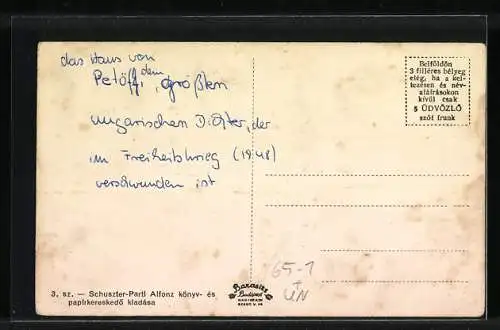 das Haus von
Petöffi, dem größten
ungarischen Dichter, der
im Freiheitskrieg (1948)
verschwunden ist
Belföldön
3 filléres bélyeg
elég, ha a kel-
tezésen és név-
aláírásokon
kívül csak
5 ÜDVÖZLŐ
szót irunk
65-1
UN
3. sz. — Schuszter-Parti Alfonz könyv- és
papirkereskedő kiadása
Barasits
Budapest